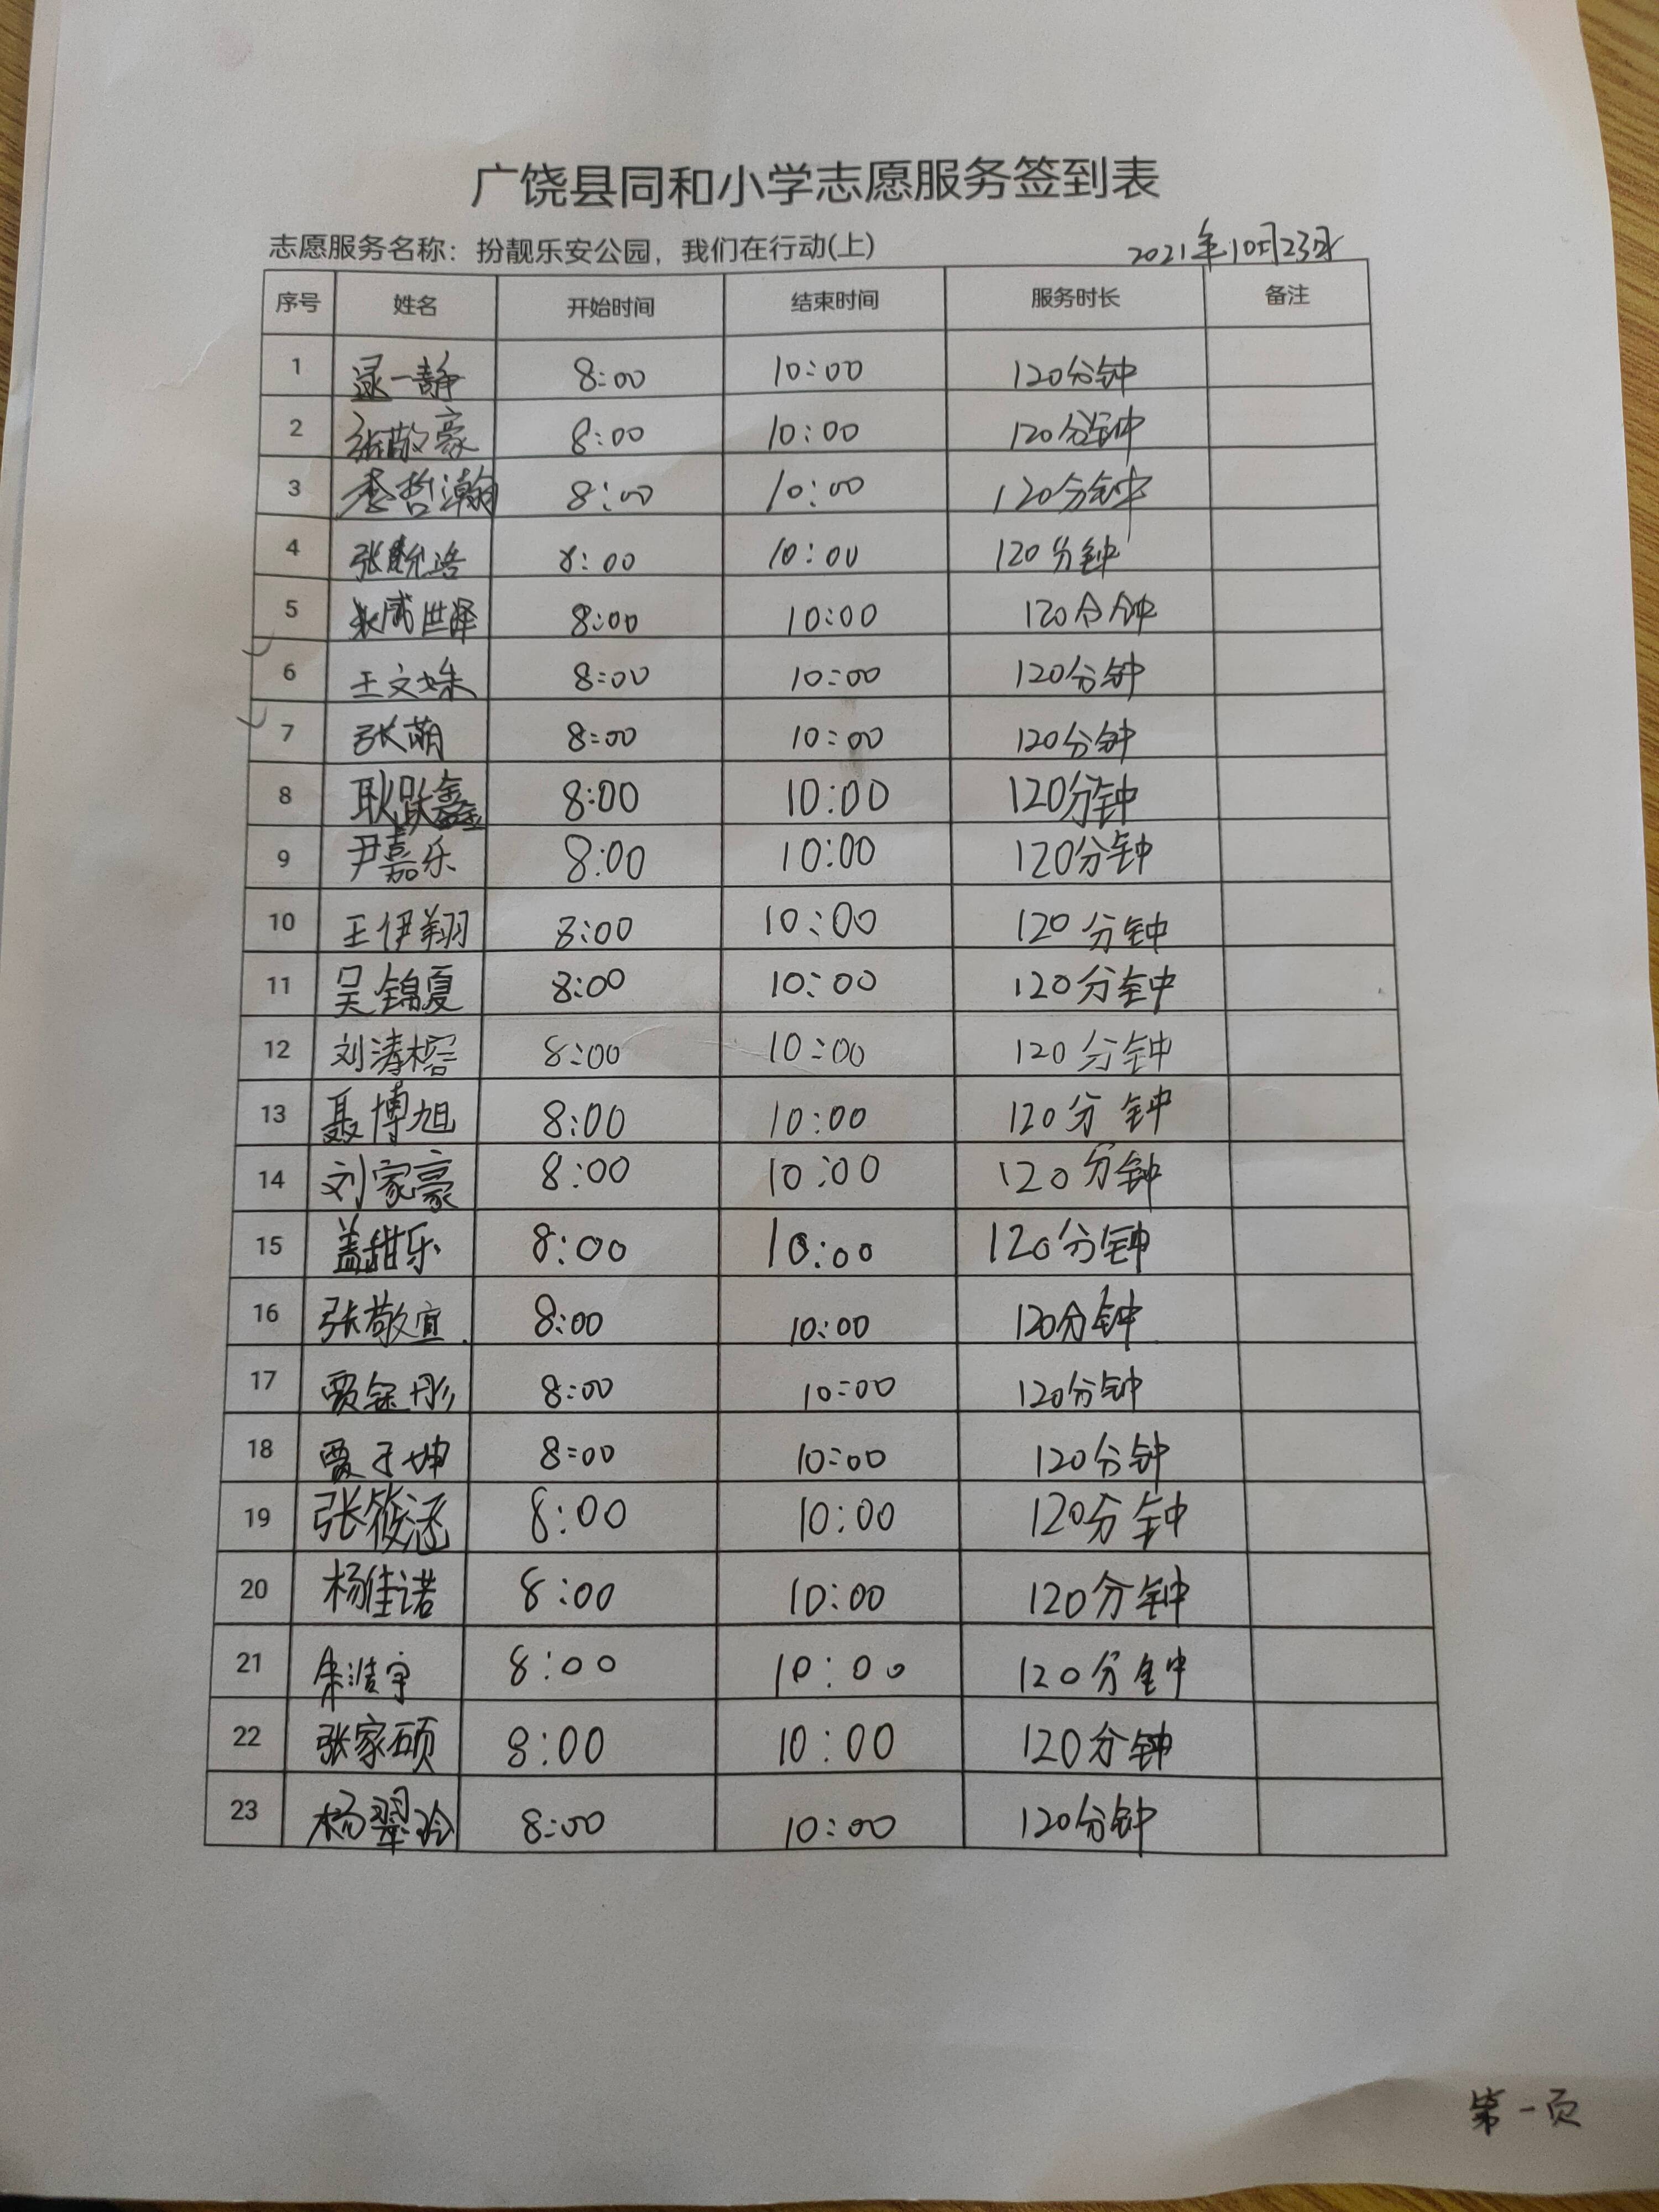 广饶县同和小学志愿服务签到表
志愿服务名称：扮靓乐安公园，我们在行动(上) 2021年10月23日
序号 姓名 开始时间 结束时间 服务时长 备注
1 逯一静 8:00 10:00 120分钟
2 张敬豪 8:00 10:00 120分钟
3 李哲瀚 8:00 10:00 120分钟
4 张 浩 8:00 10:00 120分钟
5 世泽 8:00 10:00 120分钟
6 王文姝 8:00 10:00 120分钟
7 张萌 8:00 10:00 120分钟
8 耿跃鑫 8:00 10:00 120分钟
9 尹嘉乐 8:00 10:00 120分钟
10 王伊翔 8:00 10:00 120分钟
11 吴锦夏 8:00 10:00 120分钟
12 刘清榕 8:00 10:00 120分钟
13 聂博旭 8:00 10:00 120分钟
14 刘家豪 8:00 10:00 120分钟
15 盖甜乐 8:00 10:00 120分钟
16 张敬宜 8:00 10:00 120分钟
17 贾 彤 8:00 10:00 120分钟
18 贾子坤 8:00 10:00 120分钟
19 张筱涵 8:00 10:00 120分钟
20 杨佳诺 8:00 10:00 120分钟
21 宇 8:00 10:00 120分钟
22 张家硕 8:00 10:00 120分钟
23 杨翠玲 8:00 10:00 120分钟
第一页